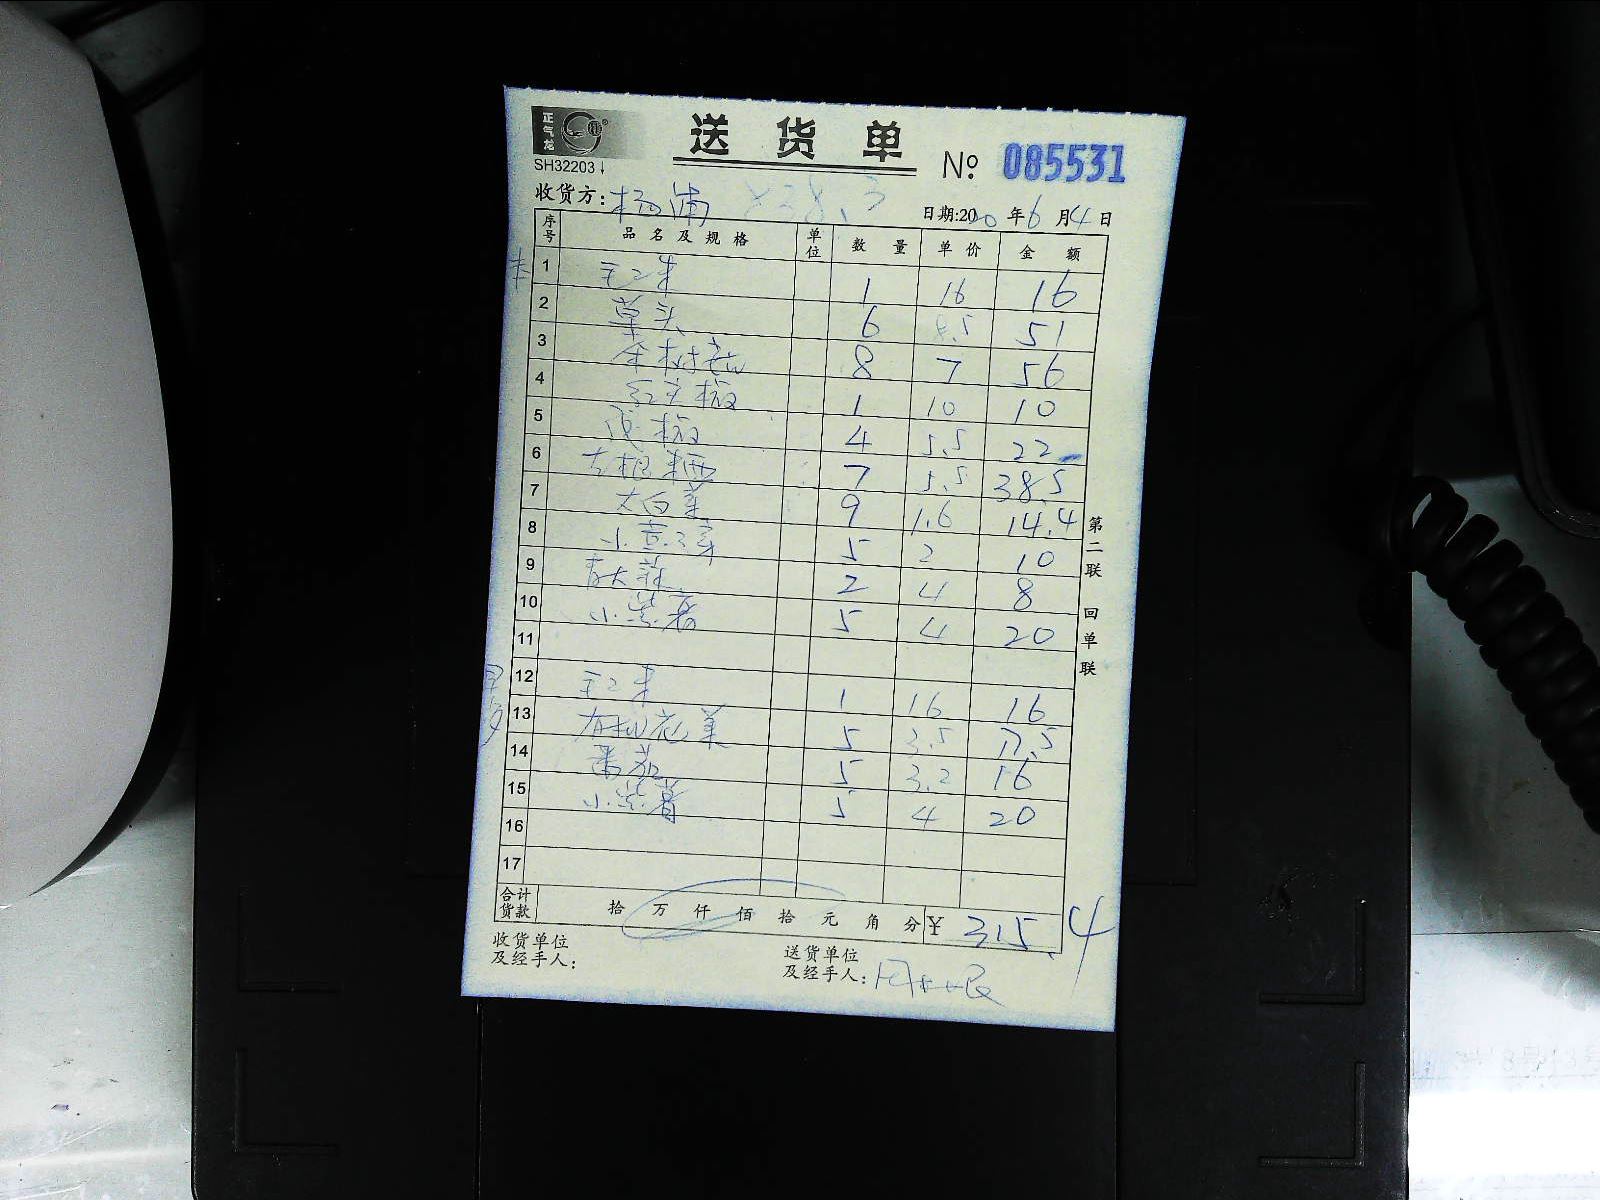 正气龙
送货单
SH32203↓
№: 085531
收货方: 杨浦 838.3
日期:2020年6月4日
序号 品名及规格 单位 数量 单价 金额
1 1 16 16
2 草头 6 8.5 51
3 8 7 56
4 1 10 10
5 4 5.5 22
6 7 5.5 38.5
7 大白菜 9 1.6 14.4
8 5 2 10
9 青大蒜 2 4 8
10 小紫薯 5 4 20
11
12 1 16 16
13 有机花菜 5 3.5 17.5
14 番茄 5 3.2 16
15 小紫薯 5 4 20
16
17
合计货款 拾 万 仟 佰 拾 元 角 分 ¥ 315.4
收货单位及经手人:
送货单位及经手人:
第二联 回单联